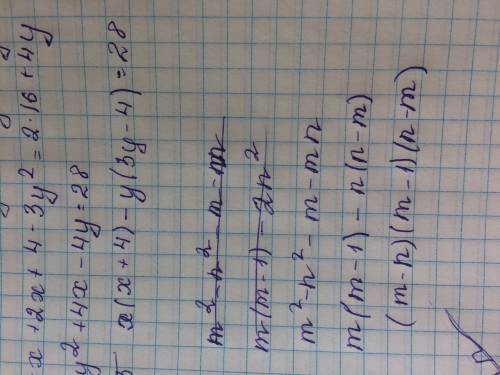 x + 2x + 4 - 3y² = 2·16 + 4y
y² + 4x - 4y = 28
x(x+4) - y(3y-4) = 28
m² - n² - m - mn
m(m-1) - 2n²
m² - n² - m - mn
m(m-1) - n(n-m)
(m-n)(m-1)(n-m)